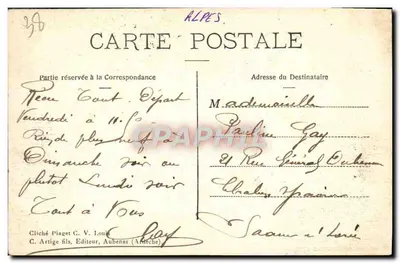 38
ALPES
CARTE POSTALE
Partie réservée à la Correspondance
Adresse du Destinataire
Reçu Tout. Départ
Vendredi à 11.50
Rien de plus neuf à
Dimanche soir ou
plutot Lundi soir
Tout à Vous
Gay
Mademoiselle
Pauline Gay
21 Rue Général
Chalon
Saone et Loire
Cliché Piaget C. V. Louis
C. Artige fils, Editeur, Aubenas (Ardèche)